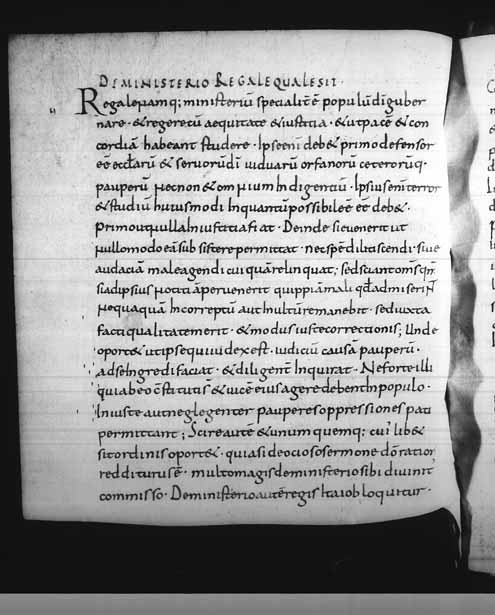 DE MINISTERIO REGALE QUALE SIT·
Regale namq; ministeriū specialit̄ ē populū dī guber
nare· & regere cū aequitate & iustitia· & ut pacē & con
cordiā habeant studere· Ipse enī deb& primo defensor
eē eccl̄arū & servorū dī viduarū orfanorū ceterorūq·
pauperū necnon & omnium indigentiū· Ipsius enī terror
& studiū huiusmodi Inquantū possibile ē eē deb&·
primo ut nulla Iniustitia fiat· Deinde si evenerit ut
nullomodo eā subsistere permittat· nec spē dilitiscendi· sive
audaciā male agendi cuiquā relinquat; sed sciant om̄s qm̄
si ad ipsius notitiā pervenerit quippiā mali qđ admiserint
nequaquā Incorreptū aut Inultū remanebit· sed iuxta
facti qualitatem erit· & modus iustae correctionis; Unde
oport& ut ipse qui iudex est· iudiciū causā pauperū·
ad se Ingredi faciat· & diligent̄ Inquirat· Ne forte illi
qui ab eo cōstituti s̄ & vicē eius agere debent In populo·
Iniuste aut neglegenter pauperes oppressiones pati
permittant; Scire autē & unum quemq; cui' lib&
sit ordinis oport&· quia si de ocioso sermone dō ratio
redditurus ē· multo magis de ministerio sibi divinit̄
commisso· De ministerio autē regis Ita iob loquitur·